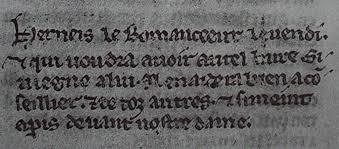 Herneis le Romanceeur le vendi.
⁊ qui voudra auoir autel liure si
uiegne a lui. il en aidera bien a co
seillier. ⁊ de toz autres. ⁊ si meint
a paris deuant nostre dame.